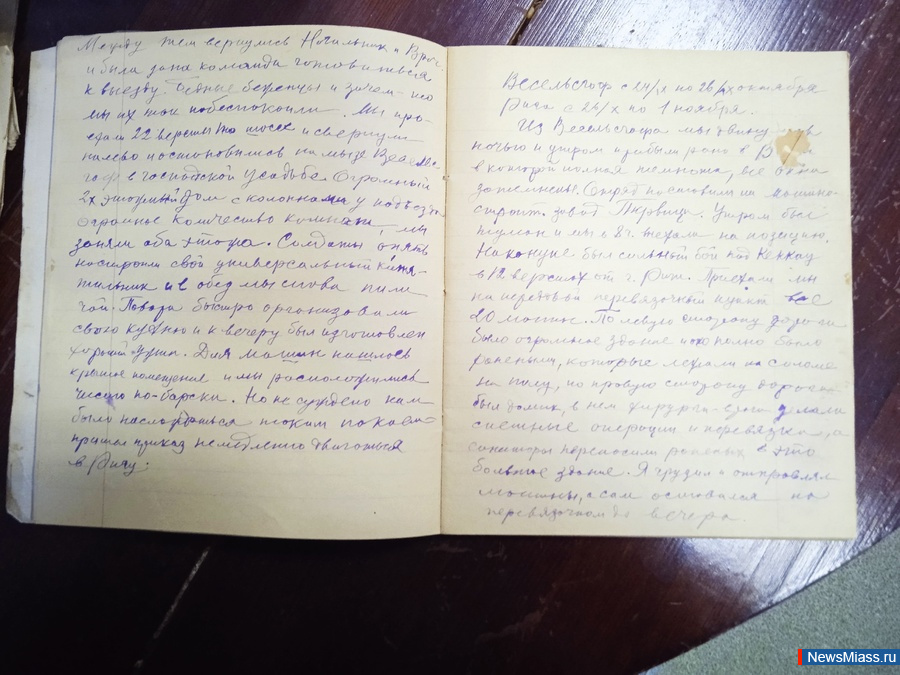 Между тем вернулись Начальник и Врач
и была дана команда готовиться
к выезду. Бедные беженцы и зачем-то
мы их так побеспокоили. Мы про-
ехали 22 версты по шоссе и свернули
налево и остановились на мызе Весельс-
гоф в господской усадьбе. Огромный
2х этажный дом с колоннами у подъезда
огромное количество комнат, мы
заняли оба этажа. Солдаты опять
настроили свой универсальный кипя-
тильник и в обед мы снова пили
чай. Повара быстро организовали
свою кухню и к вечеру был изготовлен
хороший ужин. Для машин нашлось
крытое помещение и мы расположились
чисто по-барски. Но не суждено нам
было наслаждаться таким покоем
пришел приказ немедленно двигаться
в Ригу.
Весельсгоф с 24/X по 26/X октября
Рига с 26/X по 1 ноября.
Из Весельсгофа мы двинулись
ночью и утром прибыли рано в
в которой полная темнота, все окна
затемнены. Отряд поставили на машино-
строит. завод Утром был
туман и мы в 8 г. поехали на позицию.
Накануне был сильный бой под Кеккау
в 12 верстах от г. Риги. Приехали мы
на передовой перевязочный пункт все
20 машин. По левую сторону дороги
было огромное здание и оно полно было
ранеными, которые лежали на соломе
на полу, по правую сторону дороги
был домик, в нем хирурги делали
спешные операции и перевязки, а
санитары переносили раненых в это
большое здание. Я грузил и отправлял
машины, а сам оставался на
перевязочном до вечера.
NewsMiass.ru